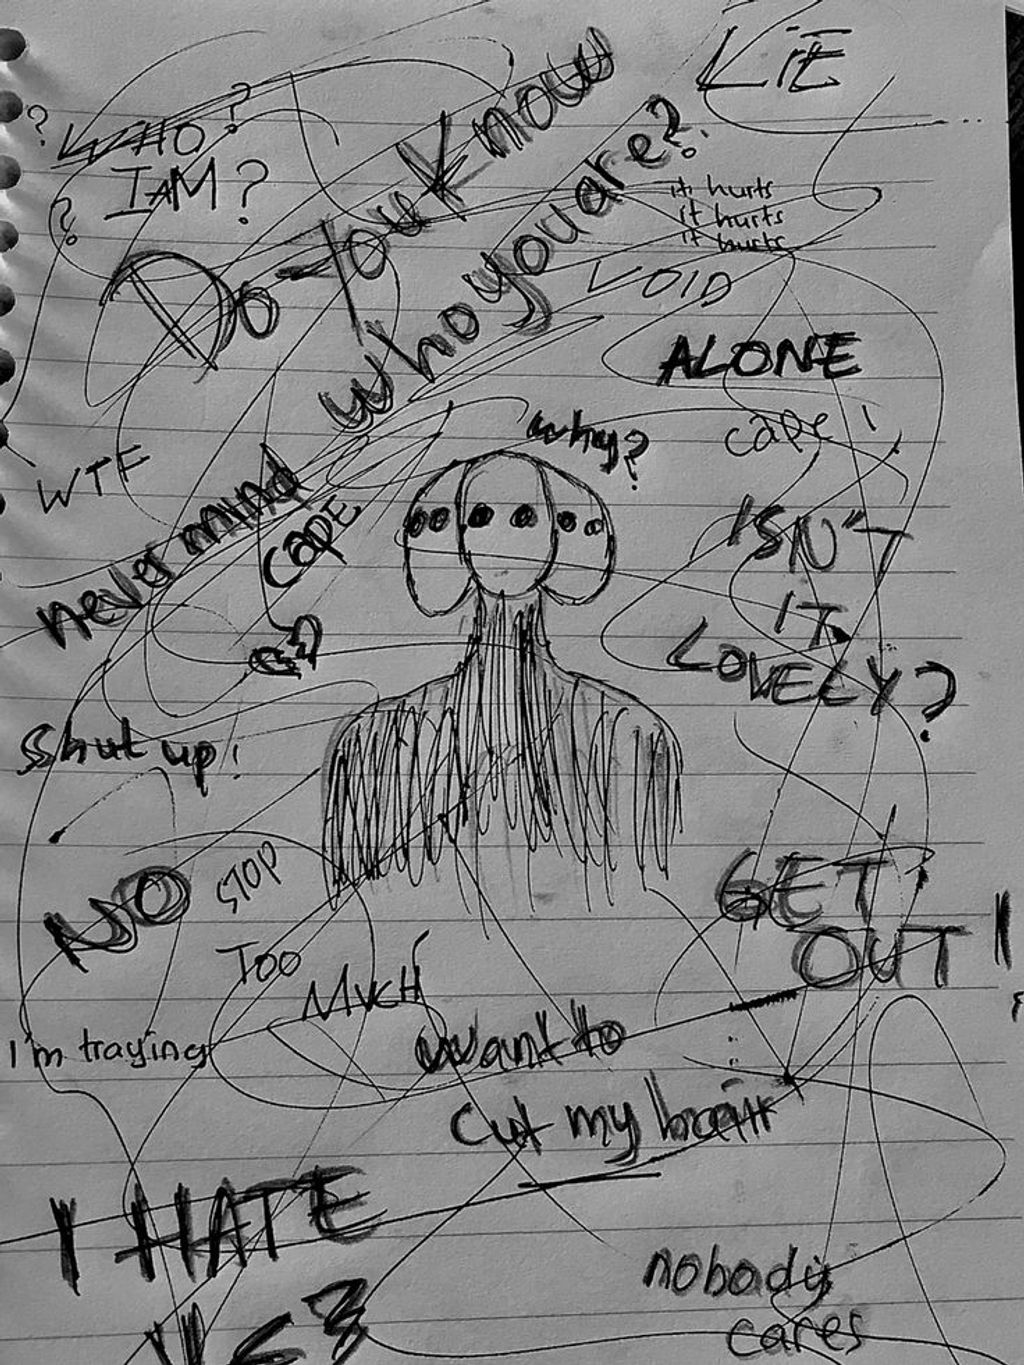 LiE
? WHO ?
I AM ?
?
Do You Know
who you are?
it hurts
it hurts
it hurts
VOID
ALONE
why?
cape !
WTF
never mind
cape
ISN'T
IT
LOVELY?
Sshut up!
NO
STOP
GET
OUT !
TOO
MUCH
I'm traying
want to
cut my
I HATE
nobody
cares